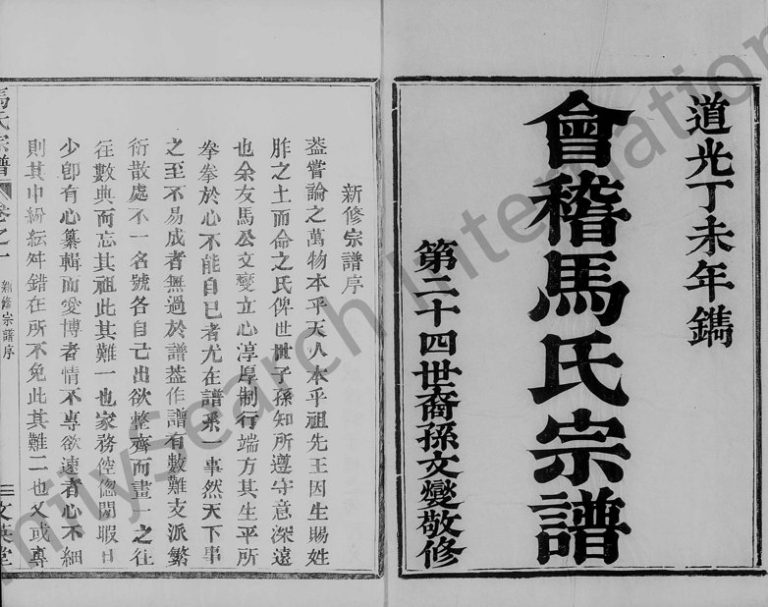 道光丁未年鐫
會稽馬氏宗譜
第二十四世裔孫文燮敬修
新修宗譜序
葢嘗論之萬物本乎天人本乎祖先王因生賜姓
胙之土而命之氏俾世世子孫知所遵守意深遠
也余友馬公文燮立心淳厚制行端方其生平所
拳拳於心不能自已者尤在譜系一事然天下事
之至不易成者無過於譜葢作譜有數難支派繁
衍散處不一名號各自己出欲整齊而畫一之往
往數典而忘其祖此其難一也家務倥傯閒暇日
少卽有心纂輯而愛博者情不專欲速者心不細
則其中紛紜舛錯在所不免此其難二也又或專
馬氏宗譜 卷之一 新修宗譜序 二 文英堂
nitySearch International